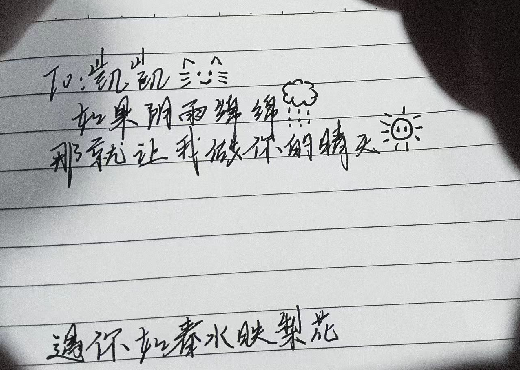 To:凯凯
如果阴雨绵绵
那就让我做你的晴天
遇你如春水映梨花